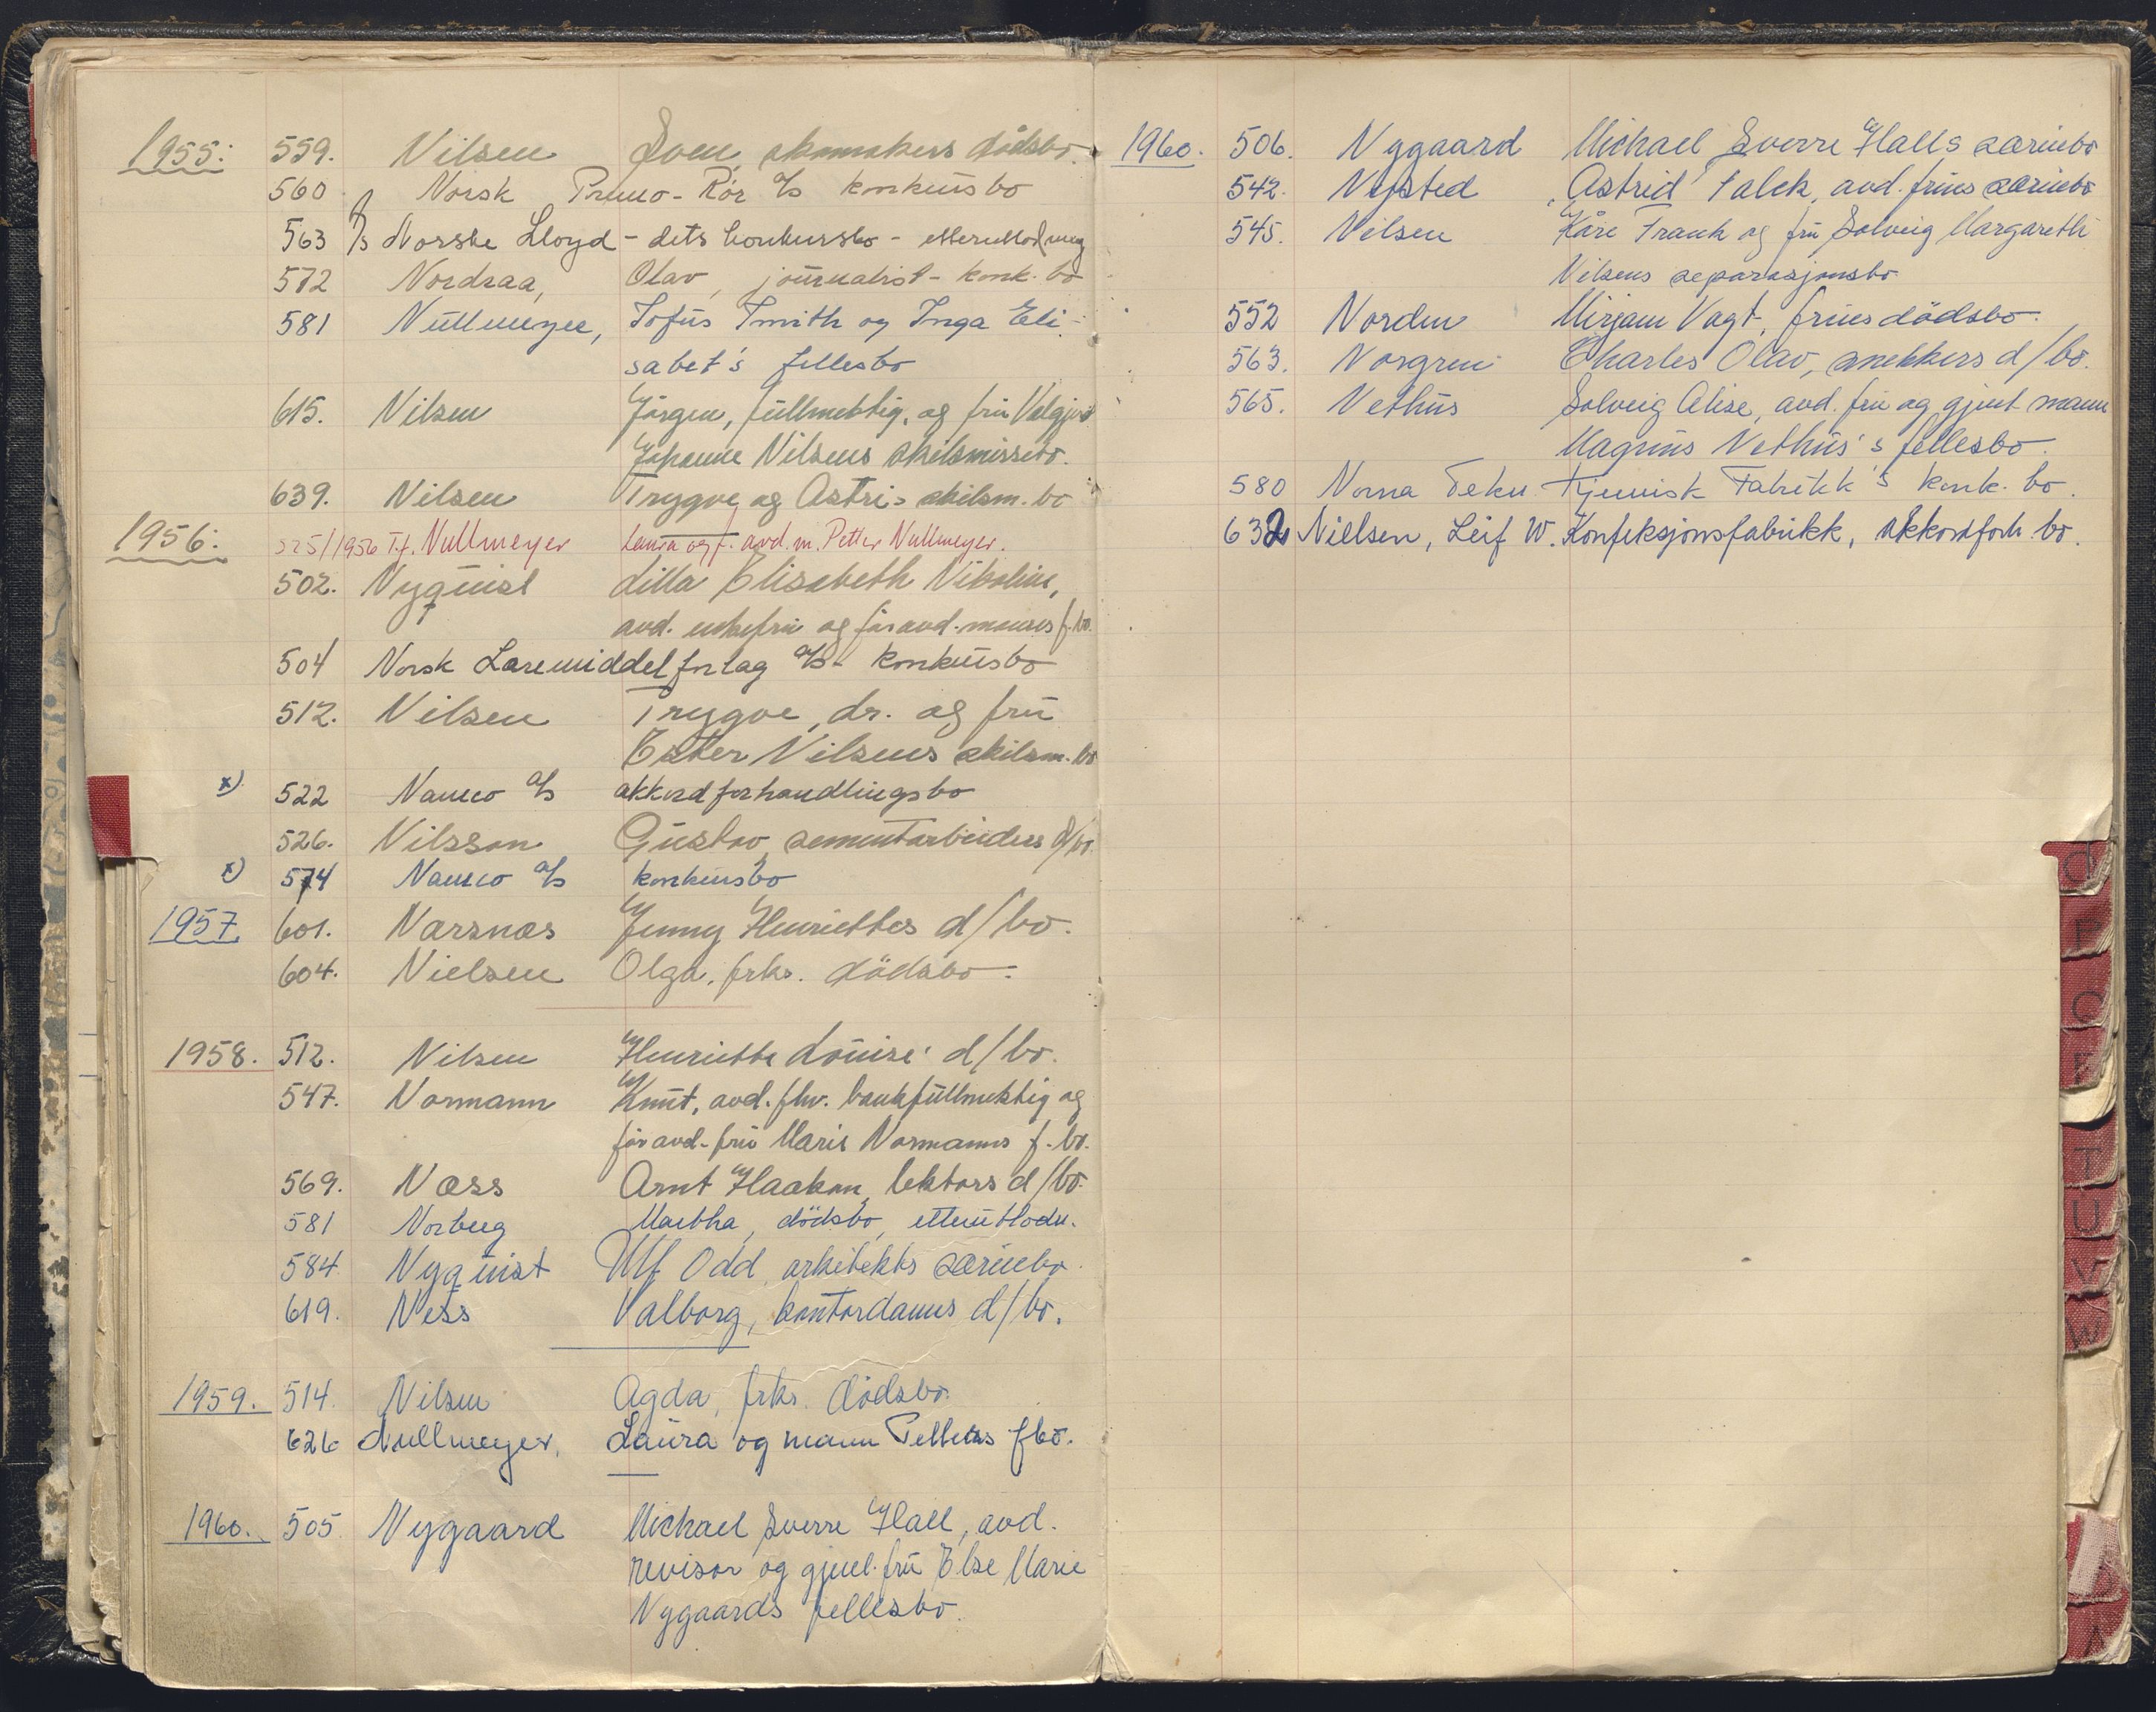 1955: 559. Nilsen Sven skomakers dödsbo.
560. Norsk Pumo-Rör a/s konkursbo
563 A/s Norske Lloyd - dets konkursbo - etterutlodning
572 Nordraa, Olav, journalist - konk. bo
581 Nullmeyer, Sofus Smith og Inga Eli-
sabet's fellesbo
615. Nilsen Jörgen, fullmektig, og fru Valgjerd
Johanne Nilsens skilsmissebo.
639. Nilsen Trygve og Astri's skilsm. bo
1956: 525/1956 T.f. Nullmeyer Laura og f. avd. m. Petter Nullmeyer.
502. Nyquist Lilla Elisabeth Nikoline,
avd. enkefru og för avd. mannes f. bo.
504 Norsk Læremiddelforlag a/s - konkursbo
512. Nilsen Trygve, dr. og fru
Ester Nilsens skilsm. bo
x) 522 Namco a/s akkordforhandlingsbo
526. Nilsson Gustav, sementarbeiders d/bo.
x) 574 Namco a/s konkursbo
1957 601. Narsnes Jenny Henriettes d/bo.
604. Nielsen Olga, frks. dödsbo.
1958. 512. Nilsen Henriette Louise' d/bo.
547. Normann Knut, avd. fhv. bankfullmektig og
för avd. fru Marie Normanns f. bo.
569. Næss Arnt Haakon, lektors d/bo.
581 Norberg Martha, dödsbo, etterutlodn.
584 Nyquist Ulf Odd, arkitekts særiebo.
619. Ness Valborg, kontordames d/bo.
1959. 514. Nilsen Agda, frks. dödsbo.
626 Nullmeyer, Laura og mann Petters fbo.
1960. 505 Nygaard Michael Sverre Hall, avd.
revisor og gjenl. fru Else Marie
Nygaards fellesbo.
1960. 506. Nygaard Michael Sverre Halls særiebo
542. Nysted Astrid Falck, avd. frues særiebo
545. Nilsen Kåre Frank og fru Solveig Margareth
Nilsens separasjonsbo
552 Norden Mirjam Vogt, frues dödsbo.
563. Norgren Charles Olav, snekkers d/bo.
565. Nethus Solveig Alise, avd. fru og gjenl. mann
Magnus Nethus's fellesbo.
580 Norna Tekn. Kjemisk Fabrikk's konk. bo.
632 Nielsen, Leif W. Konfeksjonsfabrikk, akkordforh. bo.
O
P
T
U
V
W